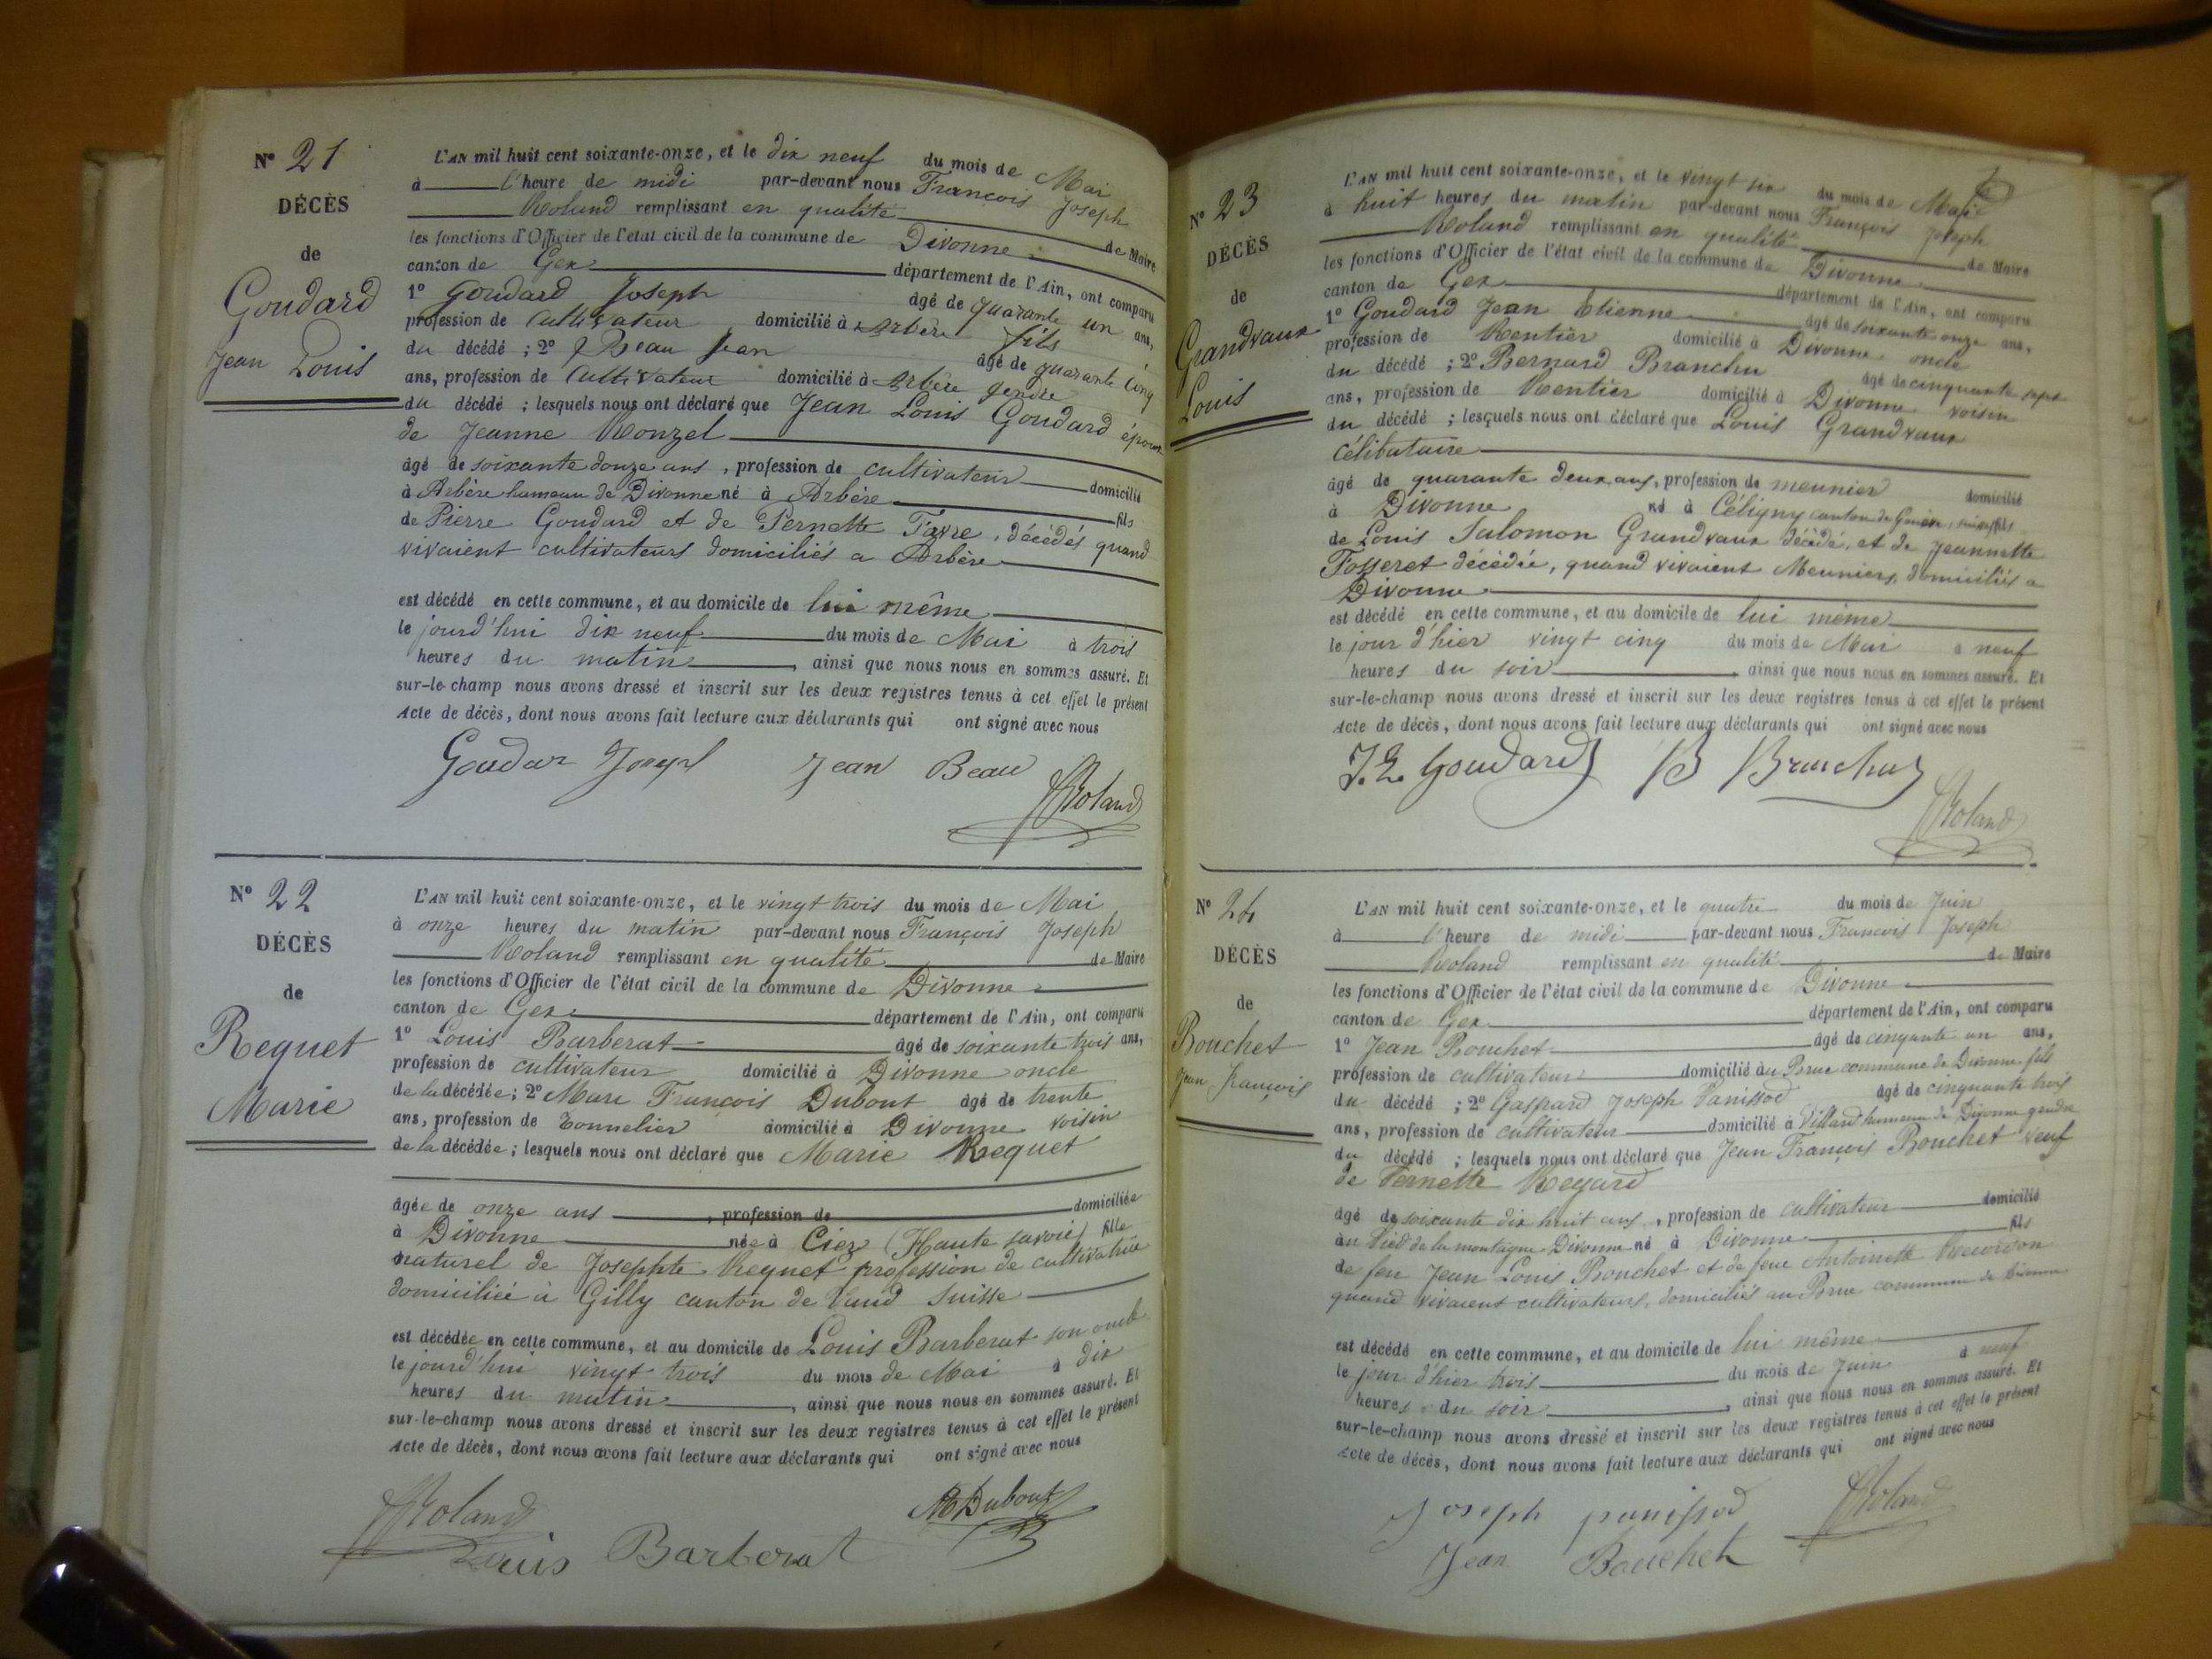 N° 21
DÉCÈS
de
Goudard
Jean Louis
L'AN mil huit cent soixante-onze, et le dix neuf du mois de Mai
à l'heure de midi par-devant nous François Joseph
Roland remplissant en qualité de Maire
les fonctions d'Officier de l'état civil de la commune de Divonne
canton de Gex département de l'Ain, ont comparu
1° Goudard Joseph âgé de quarante un ans,
profession de Cultivateur domicilié à Arbère fils
du décédé ; 2° Beau Jean âgé de quarante cinq
ans, profession de Cultivateur domicilié à Arbère gendre
du décédé ; lesquels nous ont déclaré que Jean Louis Goudard époux
de Jeanne Ronzel
âgé de soixante douze ans, profession de cultivateur domicilié
à Arbère hameau de Divonne né à Arbère fils
de Pierre Goudard et de Pernette Favre, décédés quand
vivaient cultivateurs domiciliés a Arbère
est décédé en cette commune, et au domicile de lui même
le jourd'hui dix neuf du mois de Mai à trois
heures du matin, ainsi que nous nous en sommes assuré. Et
sur-le-champ nous avons dressé et inscrit sur les deux registres tenus à cet effet le présent
Acte de décès, dont nous avons fait lecture aux déclarants qui ont signé avec nous
Goudar Joseph Jean Beau
Roland
N° 22
DÉCÈS
de
Requet
Marie
L'AN mil huit cent soixante-onze, et le vingt trois du mois de Mai
à onze heures du matin par-devant nous François Joseph
Roland remplissant en qualité de Maire
les fonctions d'Officier de l'état civil de la commune de Divonne
canton de Gex département de l'Ain, ont comparu
1° Louis Barberat âgé de soixante trois ans,
profession de cultivateur domicilié à Divonne oncle
de la décédée ; 2° Marc François Dubout âgé de trente
ans, profession de Tonnelier domicilié à Divonne voisin
de la décédée ; lesquels nous ont déclaré que Marie Requet
âgée de onze ans, profession de domiciliée
à Divonne née à Ciez (Haute savoie) fille
naturel de Josephte Requet profession de cultivatrice
domiciliée à Gilly canton de Vaud Suisse
est décédée en cette commune, et au domicile de Louis Barberat son oncle
le jourd'hui vingt trois du mois de Mai à dix
heures du matin, ainsi que nous nous en sommes assuré. Et
sur-le-champ nous avons dressé et inscrit sur les deux registres tenus à cet effet le présent
Acte de décès, dont nous avons fait lecture aux déclarants qui ont signé avec nous
Roland Dubout
Louis Barberat
N° 23
DÉCÈS
de
Grandvaux
Louis
L'AN mil huit cent soixante-onze, et le vingt six du mois de Mai
à huit heures du matin par-devant nous François Joseph
Roland remplissant en qualité de Maire
les fonctions d'Officier de l'état civil de la commune de Divonne
canton de Gex département de l'Ain, ont comparu
1° Goudard Jean Etienne âgé de soixante onze ans,
profession de Rentier domicilié à Divonne oncle
du décédé ; 2° Bernard Branchu âgé de cinquante sept
ans, profession de Rentier domicilié à Divonne voisin
du décédé ; lesquels nous ont déclaré que Louis Grandvaux
célibataire
âgé de quarante deux ans, profession de meunier domicilié
à Divonne né à Céligny canton de Genève, suisse fils
de Louis Salomon Grandvaux décédé, et de Jeannette
Fosseret décédée, quand vivaient Meuniers domiciliés a
Divonne
est décédé en cette commune, et au domicile de lui même
le jour d'hier vingt cinq du mois de Mai à neuf
heures du soir, ainsi que nous nous en sommes assuré. Et
sur-le-champ nous avons dressé et inscrit sur les deux registres tenus à cet effet le présent
Acte de décès, dont nous avons fait lecture aux déclarants qui ont signé avec nous
J. E. Goudard B Branchu
Roland
N° 24
DÉCÈS
de
Bouchet
Jean François
L'AN mil huit cent soixante-onze, et le quatre du mois de Juin
à l'heure de midi par-devant nous François Joseph
Roland remplissant en qualité de Maire
les fonctions d'Officier de l'état civil de la commune de Divonne
canton de Gex département de l'Ain, ont comparu
1° Jean Bouchet âgé de cinquante un ans,
profession de cultivateur domicilié au commune de Divonne fils
du décédé ; 2° Gaspard Joseph Panissod âgé de cinquante trois
ans, profession de cultivateur domicilié à Villard hameau de Divonne gendre
du décédé ; lesquels nous ont déclaré que Jean François Bouchet veuf
de Pernette Regard
âgé de soixante dix huit ans, profession de cultivateur domicilié
au Pied de la montagne Divonne né à Divonne fils
de feu Jean Louis Bouchet et de feue Antoinette
quand vivaient cultivateurs, domiciliés au commune de Divonne
est décédé en cette commune, et au domicile de lui même
le jour d'hier trois du mois de Juin à neuf
heures du soir, ainsi que nous nous en sommes assuré. Et
sur-le-champ nous avons dressé et inscrit sur les deux registres tenus à cet effet le présent
Acte de décès, dont nous avons fait lecture aux déclarants qui ont signé avec nous
Joseph panissod Roland
Jean Bouchet